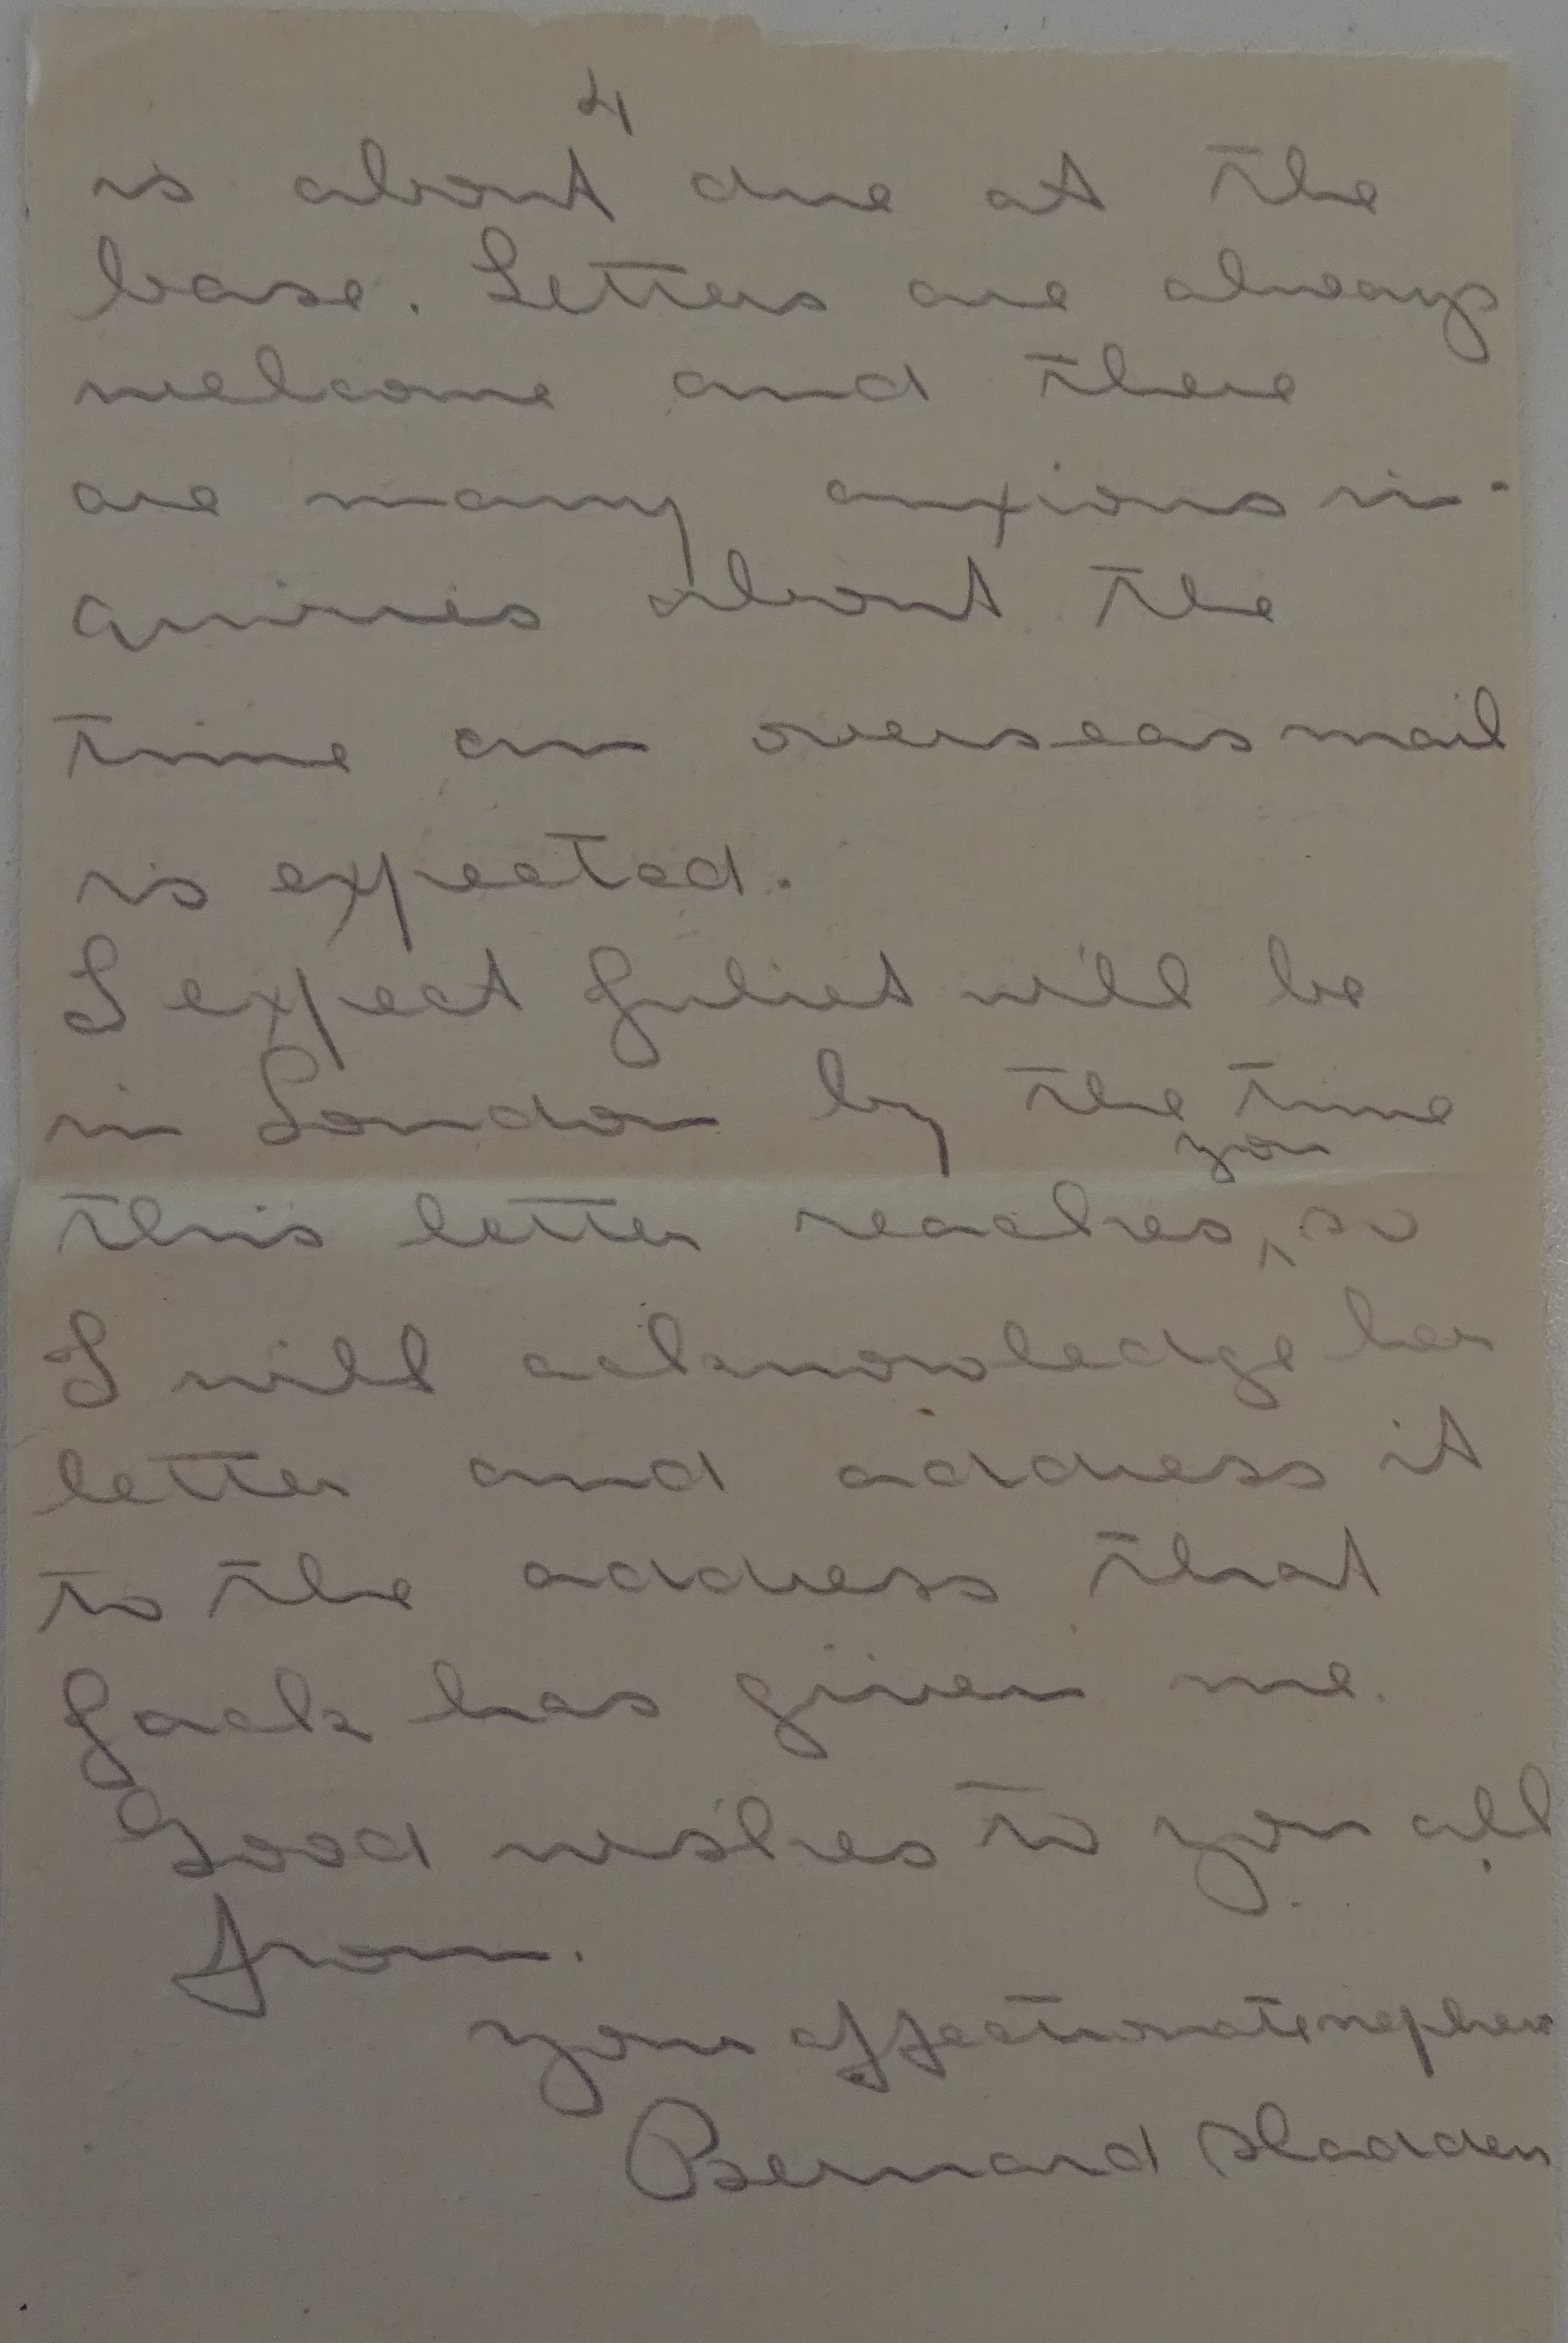 4
is about due at the
base. Letters are always
welcome and there
are many anxious in-
quiries about the
time an overseas mail
is expected.
I expect Juliet will be
in London by the time
you
this letter reaches ^ so
I will acknowledge her
letter and address it
to the address that
Jack has given me.
Good wishes to you all
from.
your affectionate nephew
Bernard Sladden